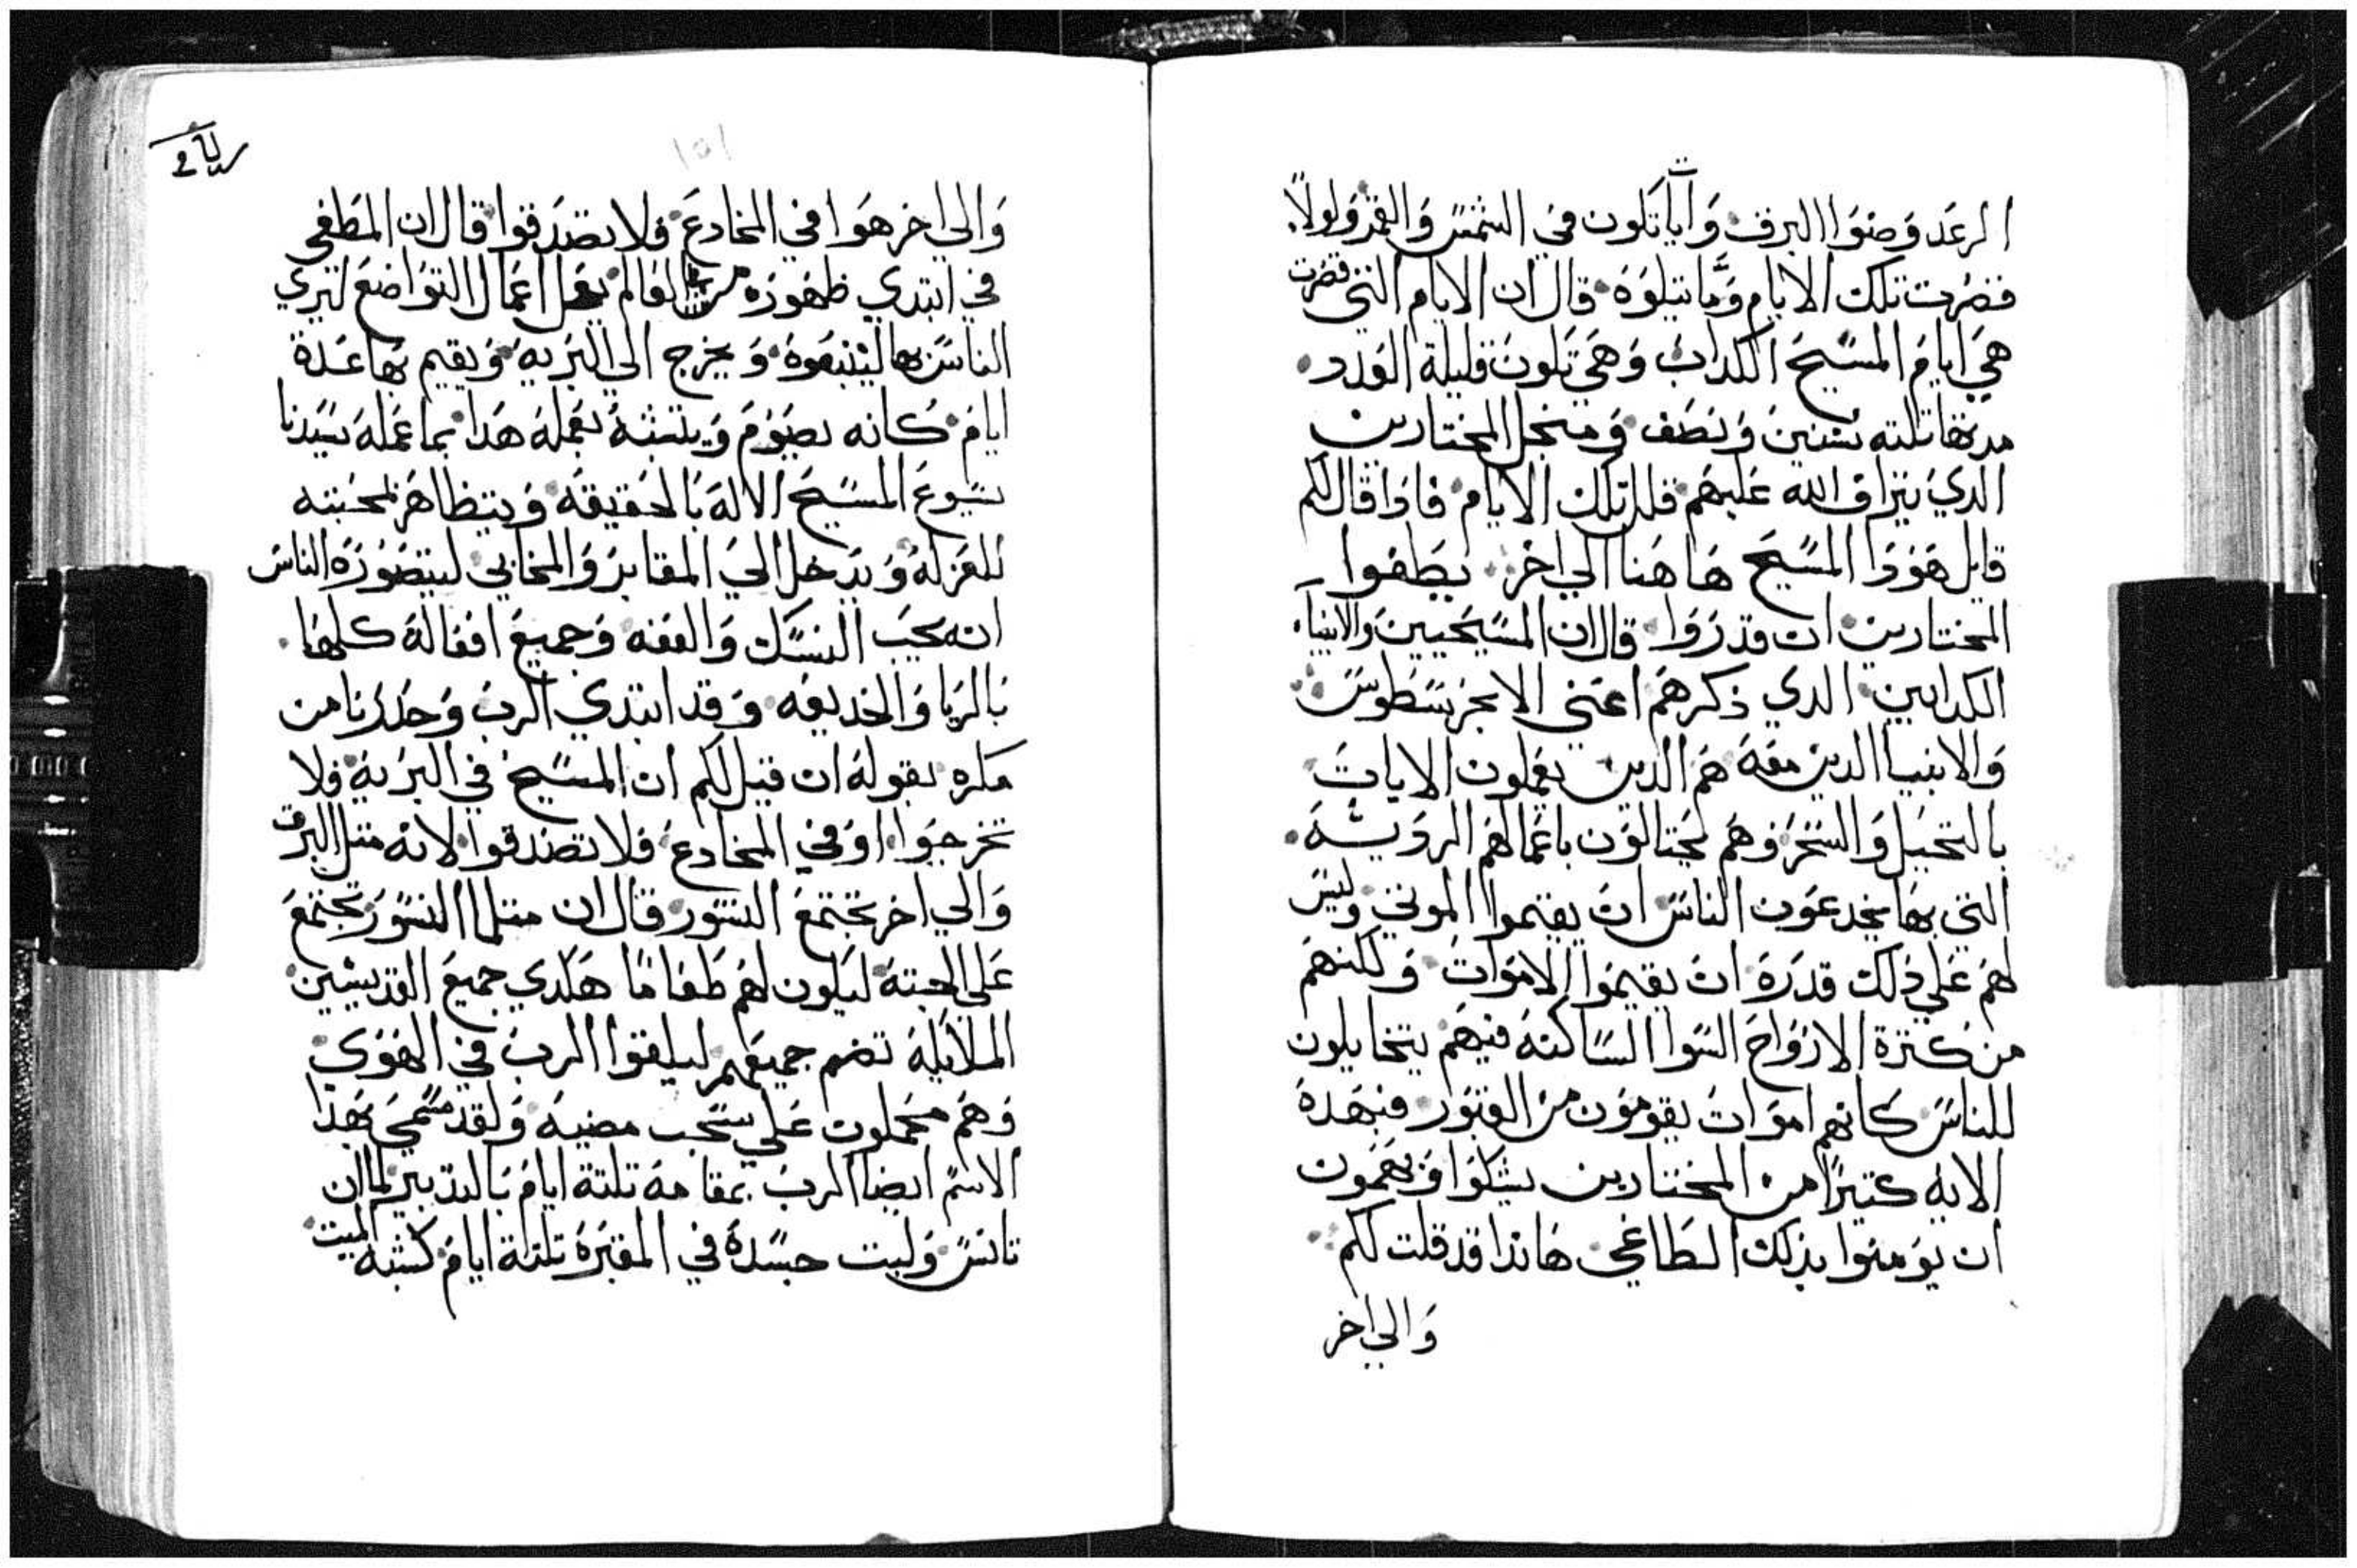 الرعد وضوا البرق وايات تكون في الشمس والقمر ولولا
قصرت تلك الايام وما يتلوه قال ان الايام التي قصرت
هي ايام المسيح الكداب وهي تكون قليلة العدد
مدتها تلته سنين ونصف ومنجل المختارين
الدي يتراف الله عليهم قلل تلك الايام فادا قال لكم
قايل هودا المسيح هاهنا الي اخر يطغوا
المختارين ان قدروا قال ان المسيحيين والانبيآء
الكدابين الدي ذكرهم اعني الابخرسطوس
والانبيا الدين معه هم الدين يعملون الايات
بالتحيل والسحر وهم يحتالون باعمالهم الرديه
التي بها يخدعون الناس ان يقيموا الموتي وليس
لهم علي ذلك قدره ان يقيموا الاموات ولكنهم
من كترة الارواح السوا الساكنه فيهم يتخايلون
للناس كانهم اموات يقومون من القبور فبهده
الايه كتيرًا من المختارين يشكوا ويهمون
ان يومنوا بذلك الطاغي هاندا قد قلت لكم
والي اخر
والي اخر هوا في المخادع فلا تصدقوا قال ان المطغي
في ابتدي ظهوره من العالم يعمل اعمال التواضع ليري
الناس بها ليتبعوه ويخرج الي البريه ويقيم بها عدة
ايام كانه يصوم ويتشبه بعمله هدا بما عمله سيدنا
يسوع المسيح الاله بالحقيقه ويتظاهر بمحبته
للعزله ويدخل الي المقابر والمخابي ليتصوره الناس
انه يحب النسك والعفه وجميع افعاله كلها
بالريا والخديعه وقد ابتدي الرب وحدرنا من
مكره بقوله ان قيل لكم ان المسيح في البريه فلا
تخرجوا او في المخادع فلا تصدقوا لانه متل البرق
والي اخر تجتمع النسور قال ان متلما النسور تجتمع
علي الجته ليكون لهم طعامًا هكدي جميع القديسين
الملايكه تضم جميعهم ليلقوا الرب في الهوي
وهم محملون علي سحب مضيه ولقد سمي بهدا
الاسم ايضا الرب بمقامه تلتة ايام بالتدبير لما ان
تانس ولبت جسده في المقبره تلتة ايام كشبه الميت